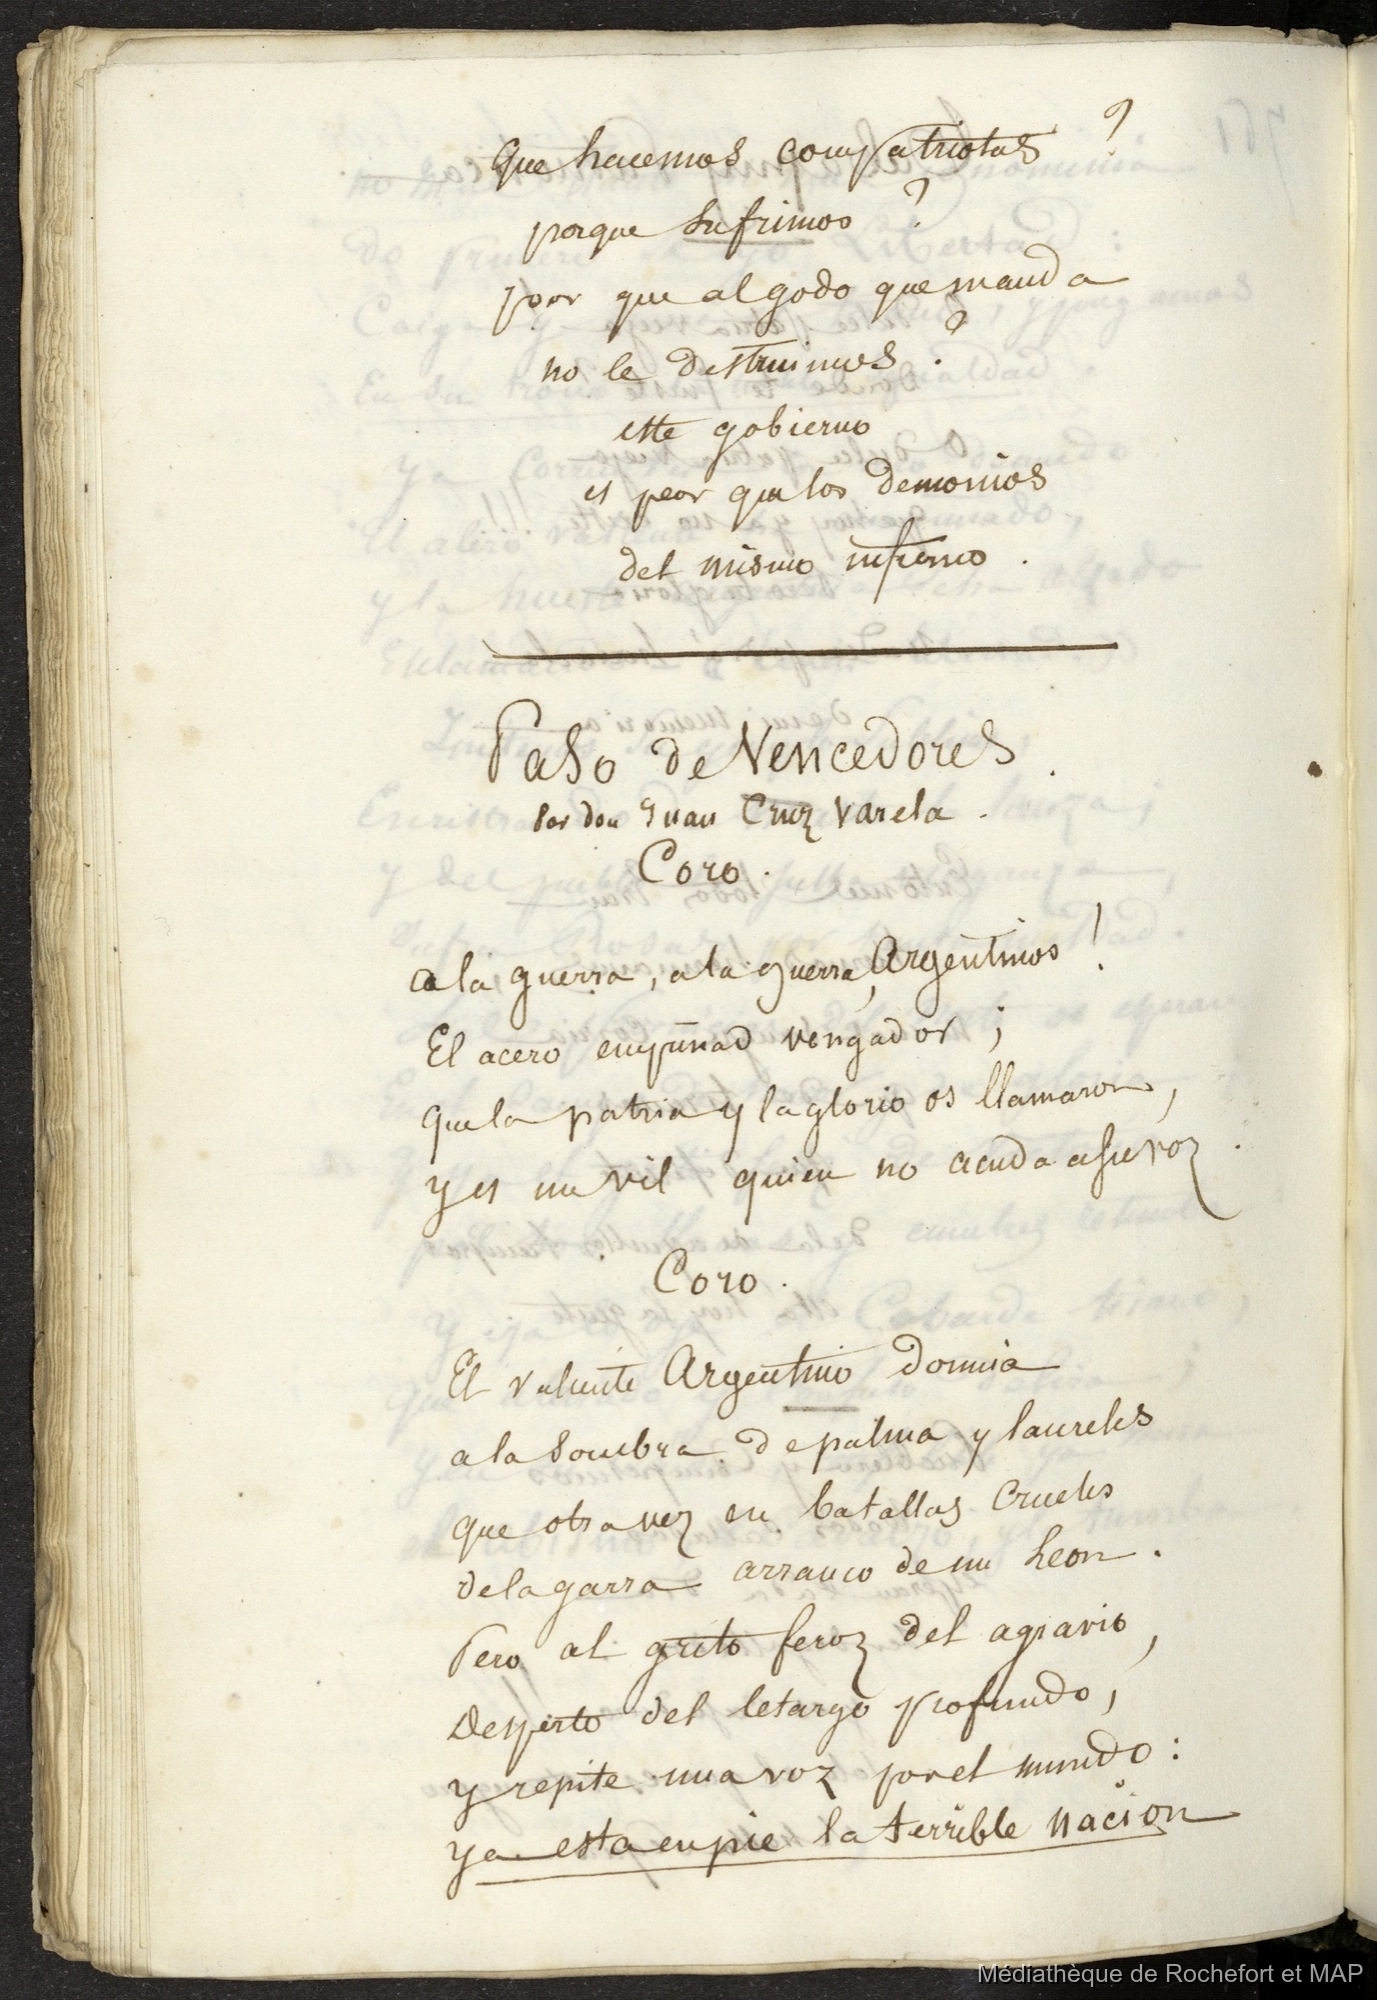 Que hacemos compatriotas ?
porque sufrimos ?
por que al godo que manda
no le destruimos ?
este gobierno
es peor que los demonios
del mismo infierno .
Paso de Vencedores .
Por don Juan Cruz Varela .
Coro .
a la guerra , a la guerra , Argentinos !
El acero empuñad vengador ;
Que la patria y la glorio os llamaron ,
y es un vil quien no acuda a su voz .
Coro .
El valiente Argentino dormia
a la sombra de palma y laureles
que otra vez en batallas crueles
de la garra arranco de un Leon .
Pero al grito feroz del agravio ,
Desperto del letargo profundo ,
y repite una voz por el mundo :
ya esta en pie la terrible nacion
Médiathèque de Rochefort et MAP